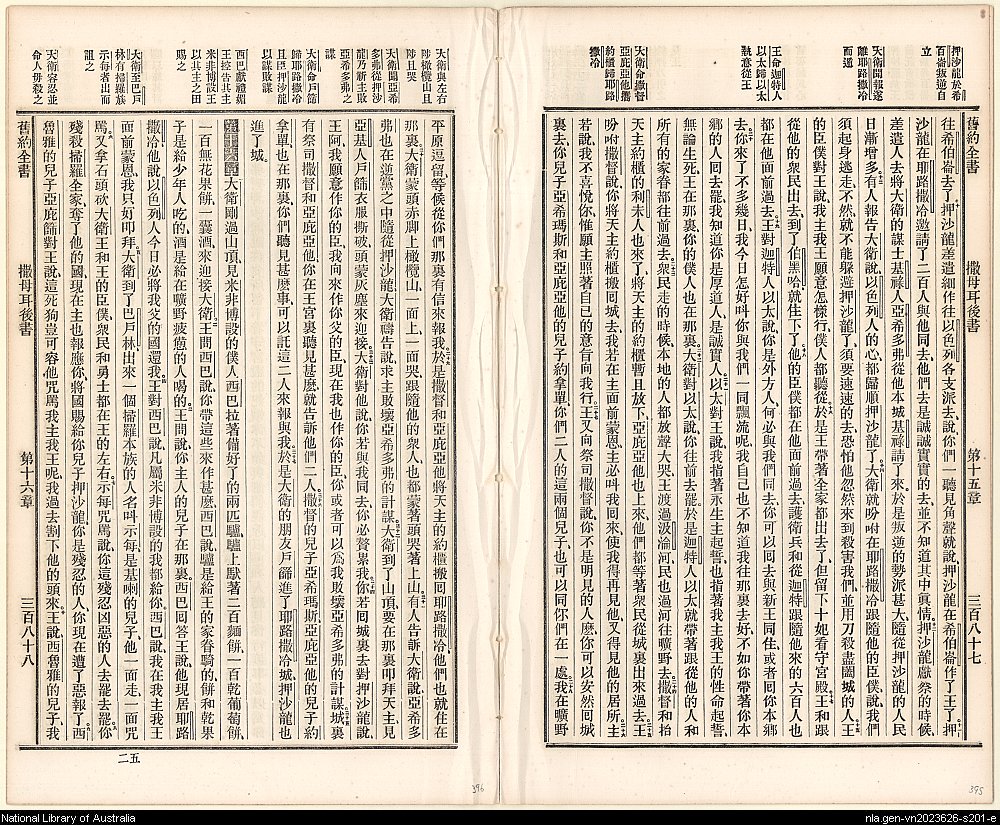 押沙龍於希
百崙叛逆自
立
大衛聞報遂
離耶路撒冷
而逃
王命迦特人
以太歸以太
執意從王
大衛命撒督
亞庇亞他擕
約櫃歸耶路
撒冷
舊約全書
撒母耳後書
第十五章
三百八十七
往希伯崙去了押沙龍差遣細作往以色列各支派去說你們一聽見角聲就說押沙龍在希伯崙作了王了押
沙龍在耶路撒冷邀請了二百人與他同去他們去是誠誠實實的去並不知道其中眞情押沙龍獻祭的時候
差遣人去將大衛的謀士基祿人亞希多弗從他本城基祿請了來於是叛逆的勢派甚大隨從押沙龍的人民
日漸增多有人報告大衛說以色列人的心都歸順押沙龍了大衛就吩咐在耶路撒冷跟隨他的臣僕說我們
須起身逃走不然就不能躲避押沙龍了須要速速的去恐怕他忽然來到殺害我們並用刀殺盡闔城的人王
的臣僕對王說我主我王願意怎樣行僕人都聽從於是王帶著全家都出去了但留下十妃看守宮殿王和跟
從他的衆民出去到了伯黑哈就住下了他的臣僕都在他面前過去護衛兵和從迦特跟隨他來的六百人也
都在他面前過去王對迦特人以太說你是外方人何必與我們同去你可以囘去與新王同住或者囘你本鄉
去你來了不多幾日我今日怎好叫你與我們一同飄流呢我自己也不知道我往那裏去好不如你帶著你本
鄉的人囘去罷我知道你是厚道人是誠實人以太對王說我指著永生主起誓也指著我主我王的性命起誓
無論生死王在那裏你的僕人也在那裏大衛對以太說你往前去罷於是迦特人以太就帶著跟從他的人和
所有的家眷都往前過去衆民走的時候本地的人都放聲大哭王渡過汲淪河民也過河往曠野去撒督和抬
天主約櫃的利未人也來了將天主的約櫃暫且放下亞庇亞他也上來他們都等著衆民從城裏出來過去王
吩咐撒督說你將天主的約櫃搬囘城去我若在主面前蒙恩主必叫我囘來使我得再見他又得見他的居所
若說我不喜悅你惟願主照著自已的意旨向我行王又向祭司撒督說你不是明見的人麽你可以安然囘城
裏去你兒子亞希瑪斯和亞庇亞他的兒子約拿單你們二人的這兩個兒子也可以同你們在一處我在曠野
大衛與左右
陟橄欖山且
陟且哭
大衛聞亞希
多弗從押沙
龍乃祈主敗
亞希多弗之
謀
大衛命戸篩
歸耶路撒冷
且臣押沙龍
以謀敗謀
西巴獻禮媚
王控告其主
米非博設王
以其主之田
賜之
大衛至巴戸
林有掃羅族
示每者出而
詛之
大衛容忍並
命人毋殺之
平原逗留等候從你們那裏有信來報我於是撒督和亞庇亞他將天主的約櫃搬囘耶路撒冷他們也就住在
那裏大衛蒙頭赤脚上橄欖山一面上一面哭跟隨他的衆人也都蒙著頭哭著上山有人告訴大衛說亞希多
弗也在逆黨之中隨從押沙龍大衛禱告說求主敗壞亞希多弗的計謀大衛到了山頂要在那裏叩拜天主見
亞基人戸篩衣服撕破頭蒙灰塵來迎接大衛對他說你若與我同去你必贅累我你若囘城裏去對押沙龍說
王阿我願意作你的臣我向來作你父的臣現在我也作你的臣你或者可以爲我敗壞亞希多弗的計謀城裏
有祭司撒督和亞庇亞他你在王宮裏聽見甚麽就告訴他們二人撒督的兒子亞希瑪斯亞庇亞他的兒子約
拿單也在那裏你們聽見甚麽事可以託這二人來報與我於是大衛的朋友戸篩進了耶路撒冷城押沙龍也
進了城
第十六章大衛剛過山頂見米非博設的僕人西巴拉著備好了的兩匹驢驢上默著二百麵餅一百乾葡萄餅
一百無花果餅一囊酒來迎接大衛王問西巴說你帶這些來作甚麽西巴說驢是給王的家眷騎的餅和乾果
子是給少年人吃的酒是給在曠野疲憊的人喝的王問說你主人的兒子在那裏西巴囘答王說他現居耶路
撒冷他說以色列人今日必將我父的國還我王對西巴說凡屬米非博設的我都給你西巴說我在我主我王
面前蒙恩我只好叩拜大衛到了巴戸林出來一個掃羅本族的人名叫示每是基喇的兒子他一面走一面咒
罵又拿石頭砍大衛王和王的臣僕衆民和勇士都在王的左右示每咒罵說你這殘忍凶惡的人去罷去罷你
殘殺掃羅全家奪了他的國現在主也報應你將國賜給你兒子押沙龍你是殘忍的人你現在遭了惡報了西
魯雅的兒子亞庇篩對王說這死狗豈可容他咒罵我主我王呢我過去割下他的頭來王說西魯雅的兒子我
舊約全書
撒母耳後書
第十六章
三百八十八
二五
396
395
National Library of Australia
nla.gen-vn2023626-s201-e